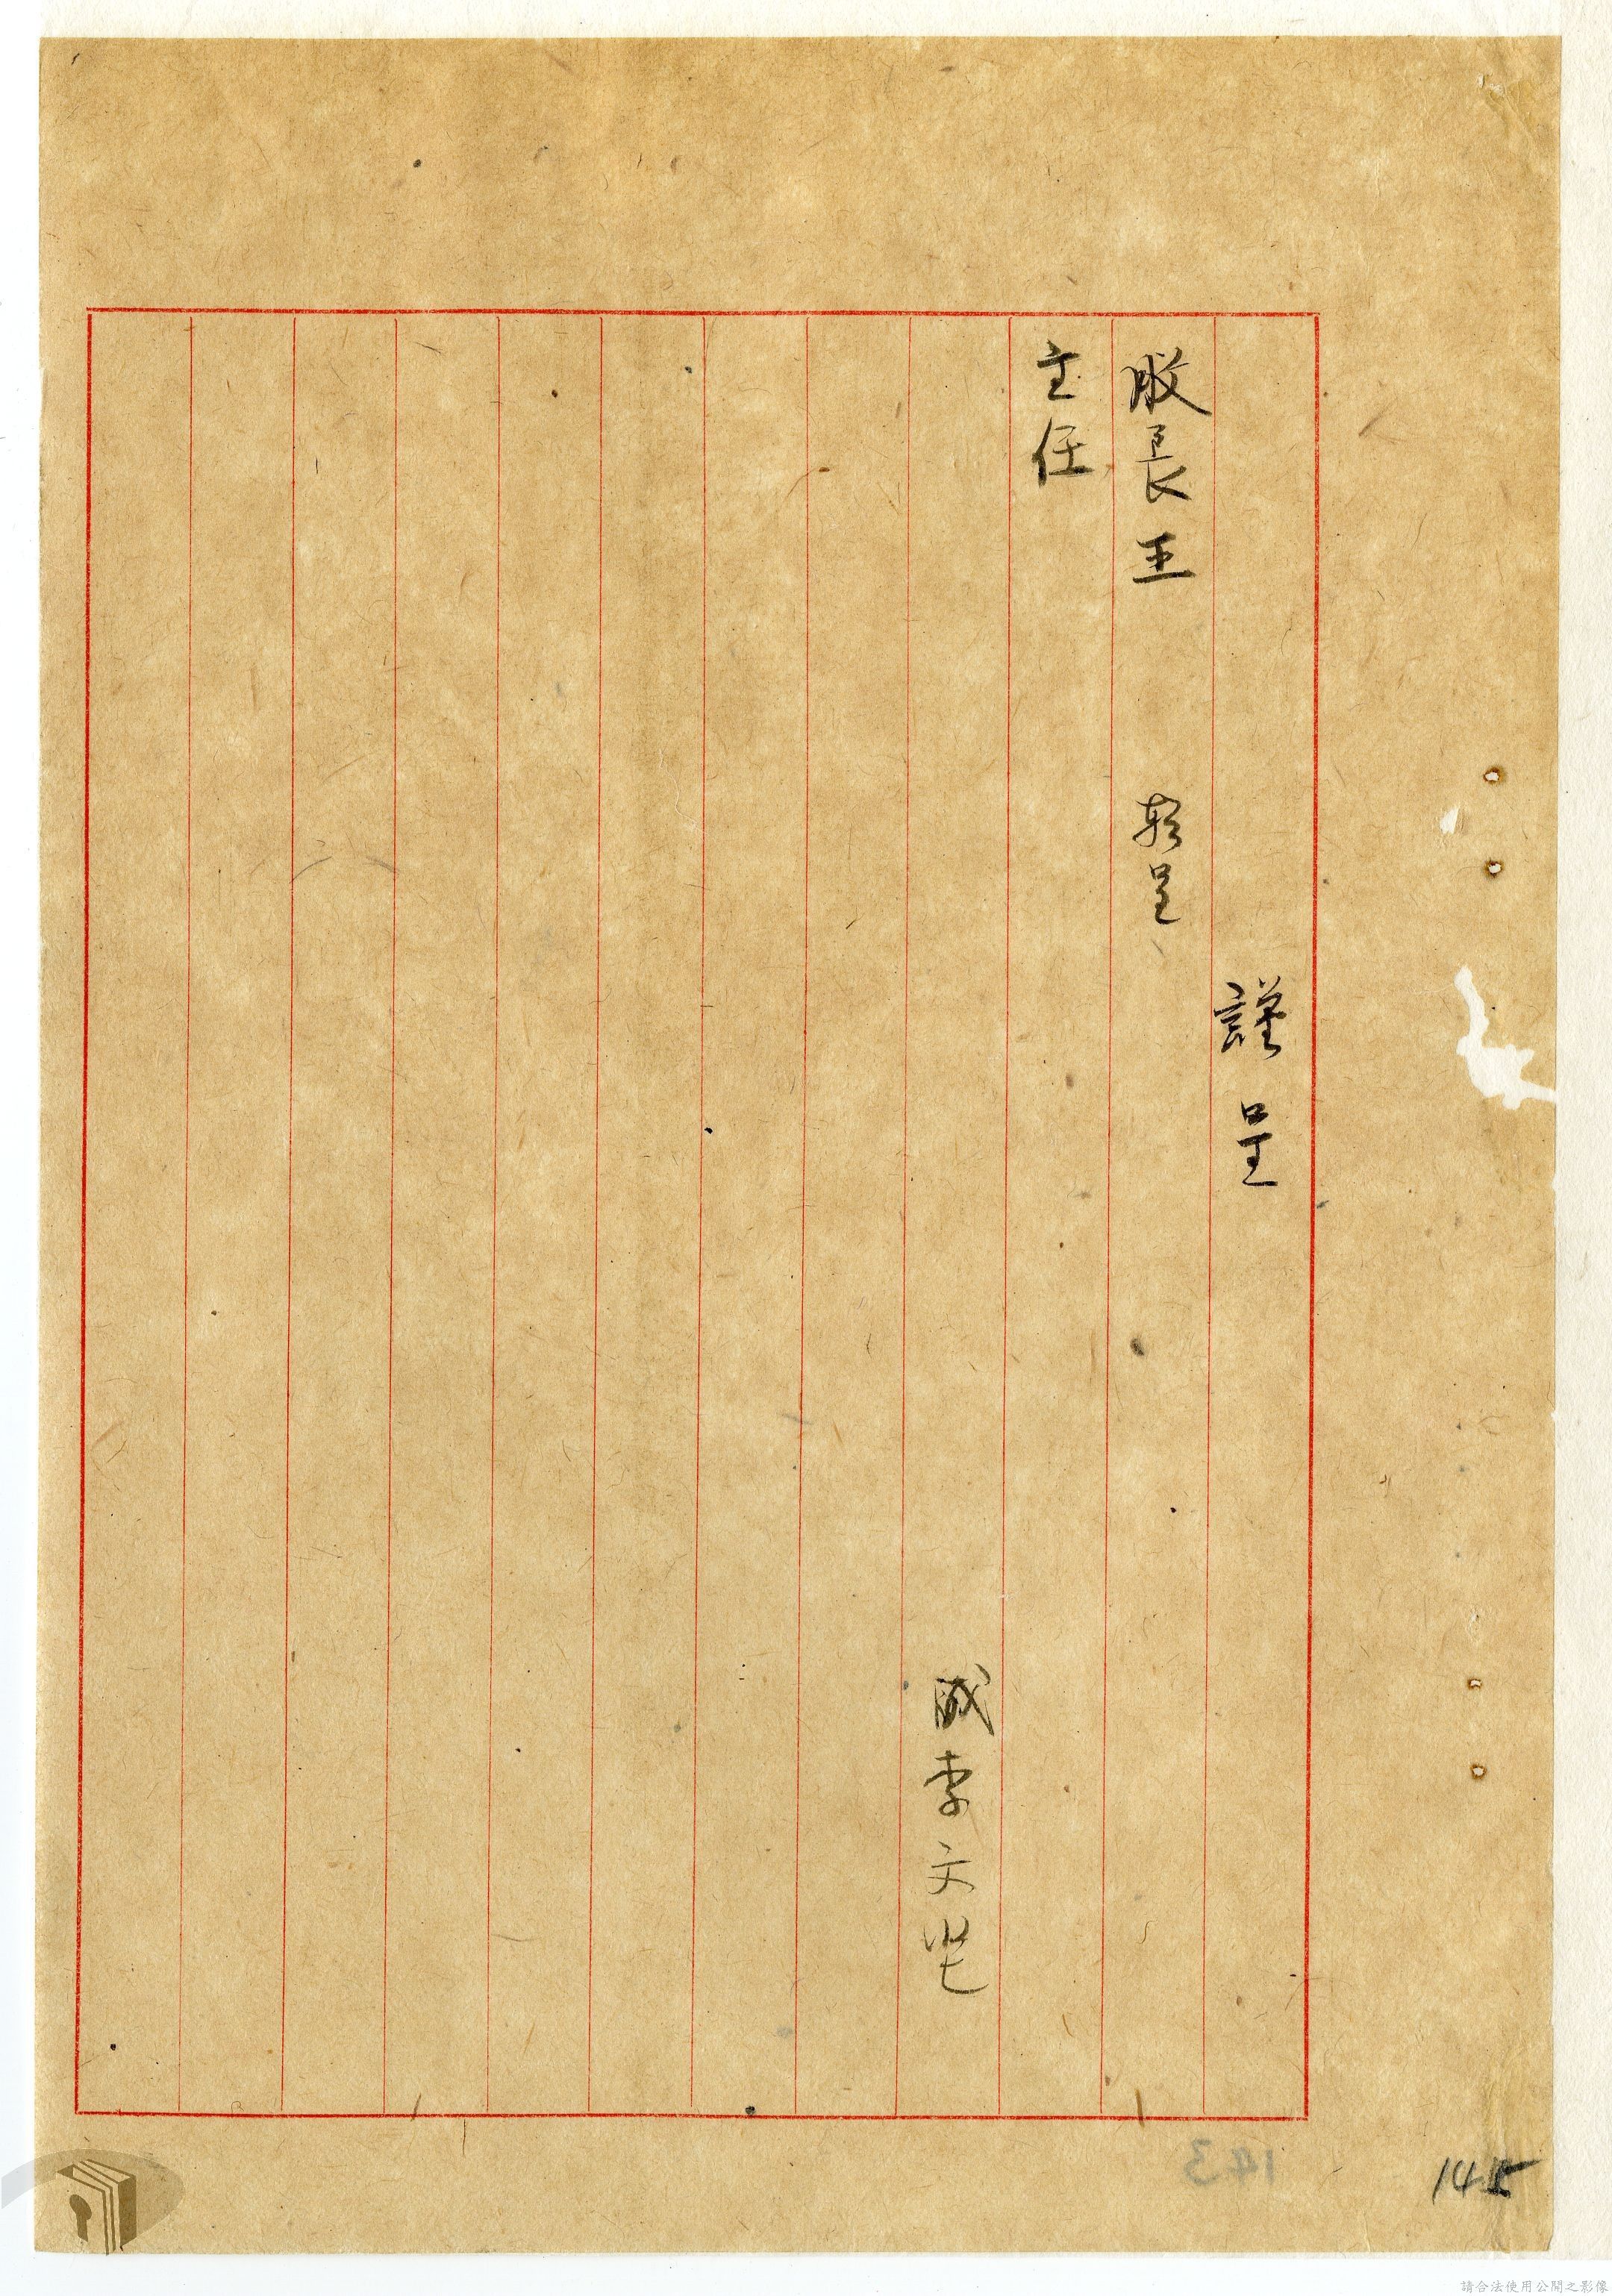 謹呈
股長王 轉呈
主任
職李文
145
143
請合法使用公開之影像